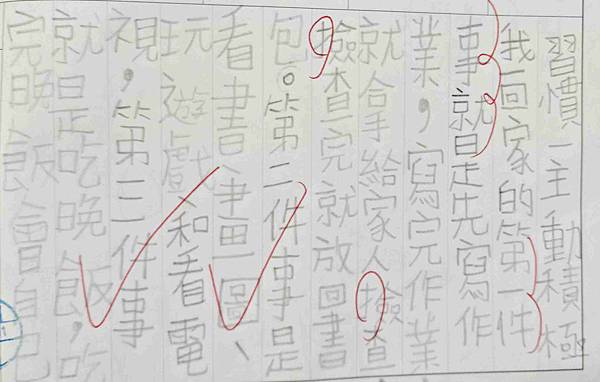 習慣—主動積極
我回家的第一件
事就是先寫作
業，寫完作業
就拿給家人撿查
撿查完就放回書
包。第二件事是
看書、畫圖、
玩遊戲和看電
視，第三件事
就是吃晚飯，吃
完晚飯會自己